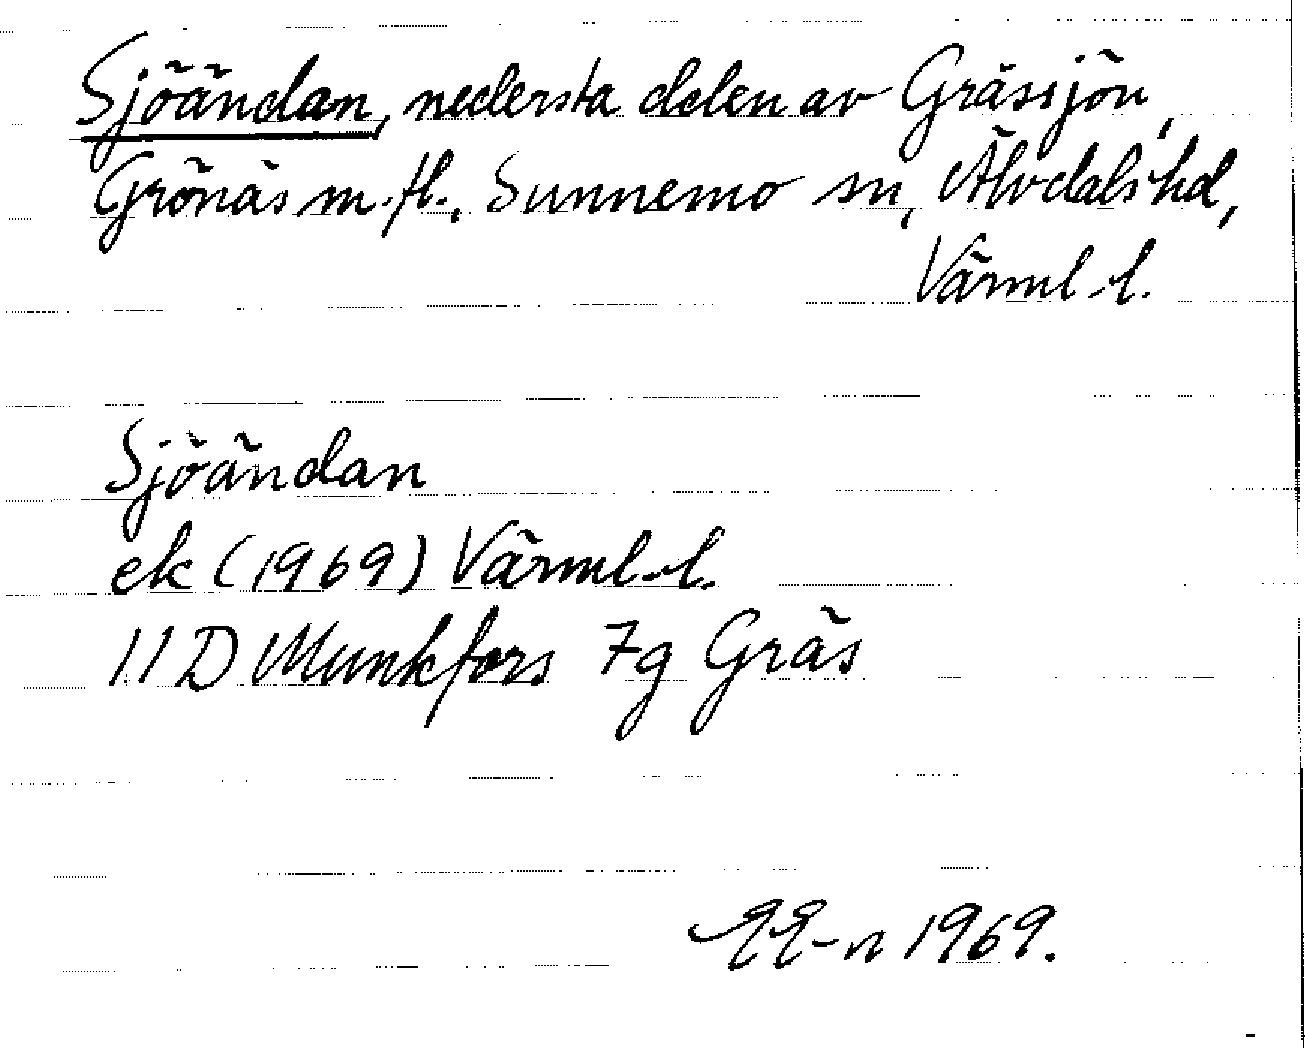 Sjöändan, nedersta delen av Grässjön,
Grönäs m.fl., Sunnemo sn, Älvdals hd,
Värml.l.
Sjöändan
ek (1969) Värml.l.
11D Munkfors 7g Gräs
1969.